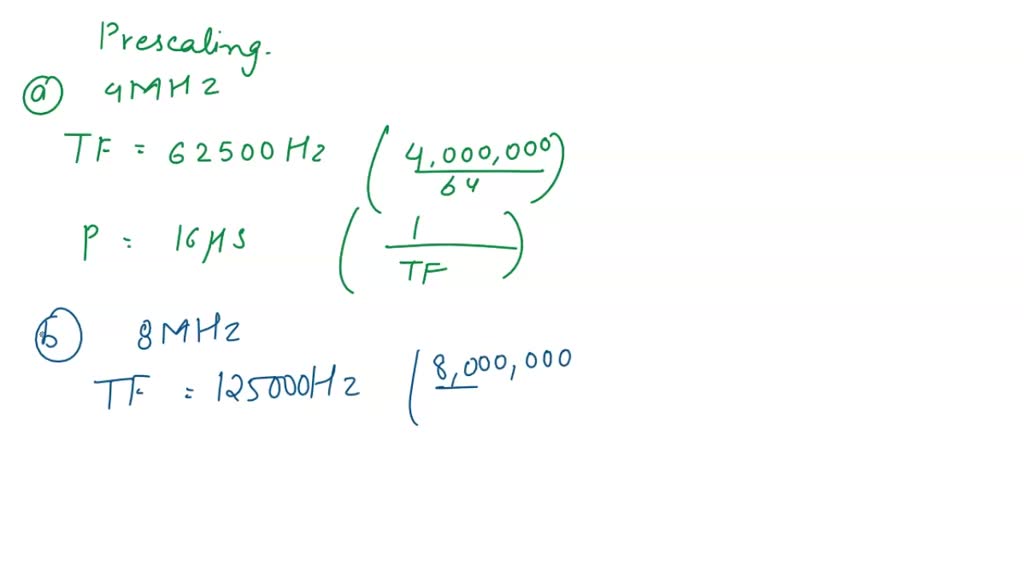 Prescaling.
a 4MHz
TF = 62500Hz ( 4,000,000 / 64 )
P = 16μs ( 1 / TF )
b 8MHz
TF = 125000Hz ( 8,000,000